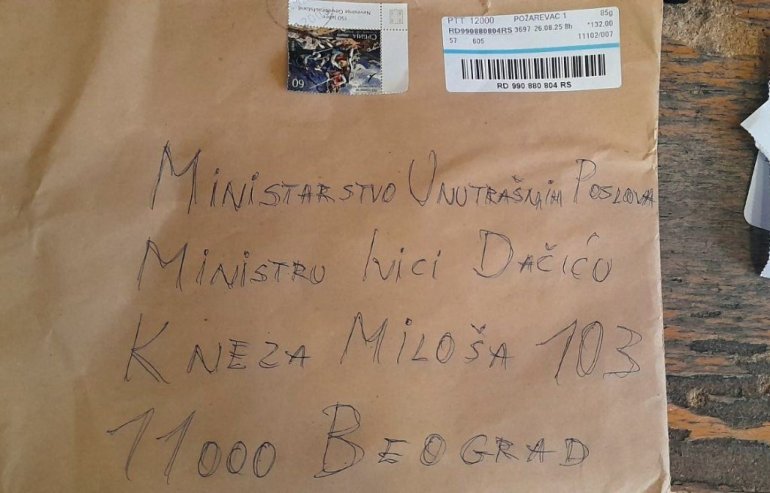 Србија
60
PTT 12000 POŽAREVAC 1 85g
RD990880804RS 3697 26.08.25 8h *132,00
57 605 11102/007
RD 990 880 804 RS
MINISTARSTVO UNUTRAŠNJIH POSLOVA
MINISTRU IVICI DAČIĆU
KNEZA MILOŠA 103
11000 BEOGRAD